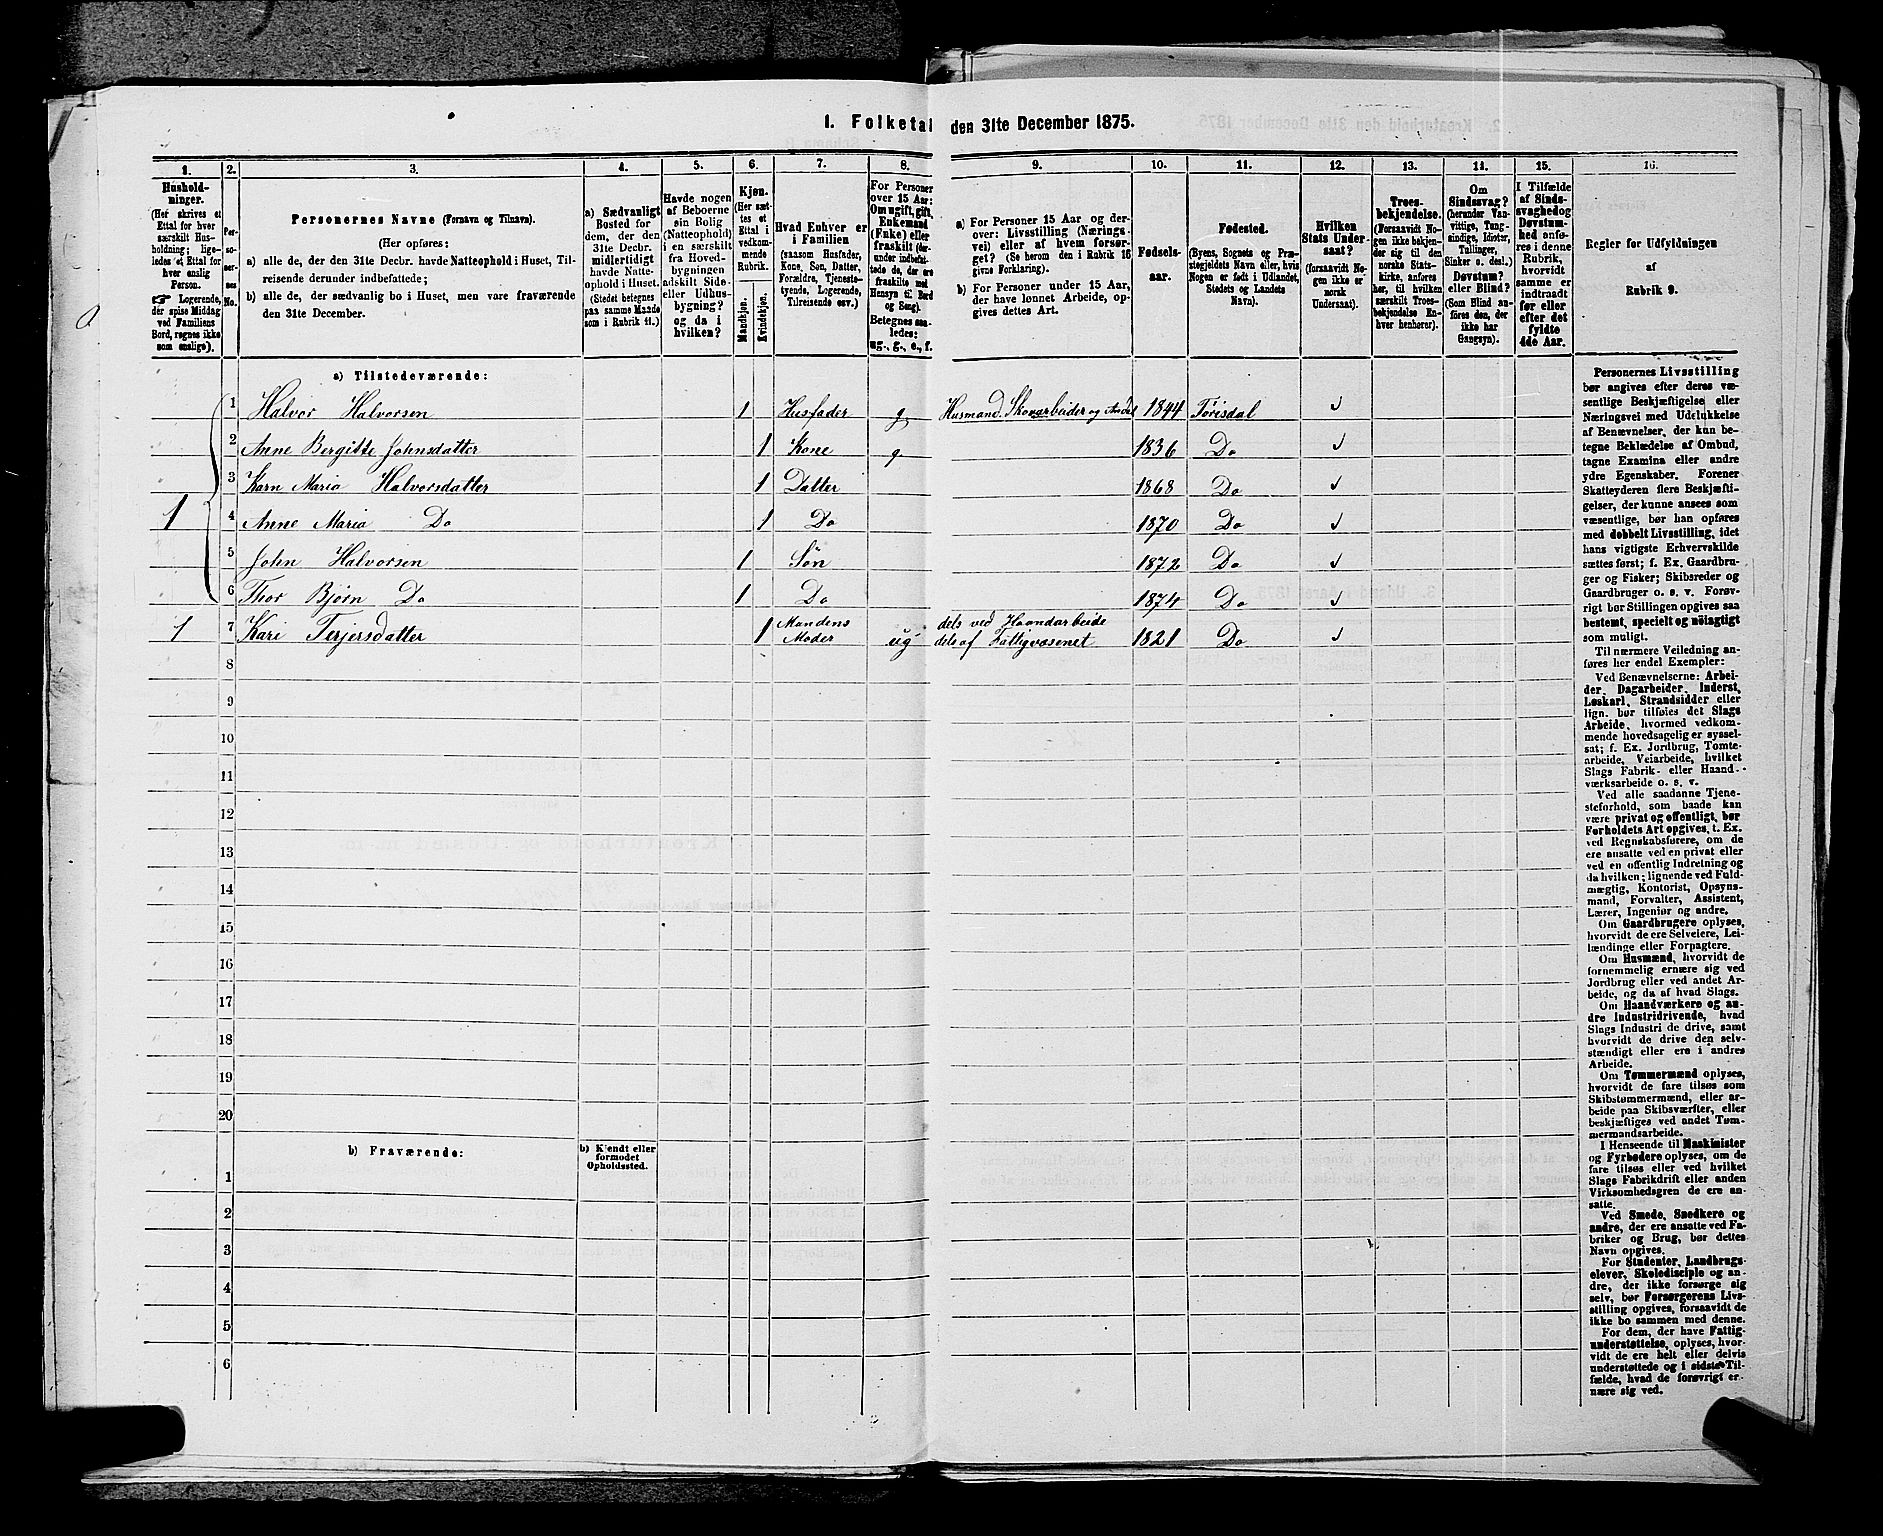 1. Folketal den 31te December 1875.
1. 2. 3. 4. 5. 6. 7. 8. 9. 10. 11. 12. 13. 14. 15. 16.
Husholdninger.
(Her skrives et
Ettal for hver
særskilt Husholdning;
ligeledes et Ettal for
hver enslig
Person.
☞ Logerende,
der spise Middag
ved Familiens
Bord, regnes ikke
som enslige).
Personernes No.
Personernes Navne (Fornavn og Tilnavn).
(Her opføres:
a) alle de, der den 31te Decbr. havde Natteophold i Huset, Tilreisende derunder indbefattede;
b) alle de, der sædvanlig bo i Huset, men vare fraværende
den 31te December.
a) Sædvanligt
Bosted for
dem, der den
31te Decbr.
midlertidigt
havde Natteophold
i Huset.
(Stedet betegnes
paa samme Maade
som i Rubrik 11.)
Havde nogen
af Beboerne
sin Bolig
(Natteophold)
i en særskilt
fra Hovedbygningen
adskilt Side-
eller Udhusbygning?
og da i
hvilken?
Kjøn.
(Her sættes et
Ettal i
vedkommende
Rubrik.
Mandkjøn. Kvindekjøn.
Hvad Enhver er
i Familien
(saasom Husfader,
Kone, Søn, Datter,
Forældre, Tjenestetyende,
Logerende,
Tilreisende osv.)
For Personer
over 15 Aar:
Om ugift, gift,
Enkemand
(Enke) eller
fraskilt (derunder
indbefattede de, der ere
fraskilte med
Hensyn til Bord
og Seng).
Betegnes saaledes:
ug., g., e., f.
a) For Personer 15 Aar og derover:
Livsstilling (Næringsvei)
eller af hvem forsørget?
(Se herom den i Rubrik 16
givne Forklaring).
b) For Personer under 15 Aar,
der have lønnet Arbeide, opgives
dettes Art.
Fødselsaar.
Fødested.
(Byens, Sognets og Præstegjeldets
Navn eller, hvis
Nogen er født i Udlandet,
Stedets og Landets
Navn).
Hvilken
Stats Undersaat?
(forsaavidt Nogen
ikke er
norsk
Undersaat).
Troesbekjendelse.
(Forsaavidt Nogen
ikke bekjender
sig til den
norske Statskirke,
anføres
her, til hvilken
særskilt Troesbekjendelse
Enhver henhører).
Om
Sindssvag?
(herunder Vanvittige,
Tungsindige,
Idioter,
Tullinger,
Sinker o. desl.)
Døvstum?
eller Blind?
(Som Blind anføres
den, der
ikke har
Gangsyn).
I Tilfælde
af Sindssvaghed og
Døvstumhed
anføres i denne
Rubrik,
hvorvidt
samme er
indtraadt
før eller
efter det
fyldte
4de Aar.
Regler for Udfyldningen
af
Rubrik 9.
a) Tilstedeværende:
1 Halvor Halvorsen 1 Husfader g Husmand. Skovarbeider og Andet 1844 Tørisdal ✓
2 Anne Bergitte Johnsdatter 1 Kone g 1836 Do ✓
3 Karn Maria Halvorsdatter 1 Datter 1868 Do ✓
1 4 Anne Maria Do 1 Do 1870 Do ✓
5 John Halvorsen 1 Søn 1872 Do ✓
6 Thor Bjørn Do 1 Do 1874 Do ✓
1 7 Kari Terjersdatter 1 Mandens Moder ug dels ved Haandarbeide
dels af Fattigvæsenet 1821 Do ✓
8
9
10
11
12
13
14
15
16
17
18
19
20
b) Fraværende:
b) Kjendt eller
formodet
Opholdssted.
1
2
3
4
5
6
Personernes Livsstilling
bør angives efter deres væsentlige
Beskjæftigelse eller
Næringsvei med Udelukkelse
af Benævnelser, der kun betegne
Beklædelse af Ombud,
tagne Examina eller andre
ydre Egenskaber. Forener
Skatteyderen flere Beskjæftigelser,
der kunne ansees som
væsentlige, bør han opføres
med dobbelt Livsstilling, idet
hans vigtigste Erhvervskilde
sættes først; f. Ex. Gaardbruger
og Fisker; Skibsreder og
Gaardbruger o. s. v. Forsvrigt
bør Stillingen opgives saa
bestemt, specielt og nöiagtigt
som muligt.
Til nærmere Veiledning anføres
her endel Exempler:
Ved Benævnelserne: Arbeider,
Dagarbeider, Inderst,
Løskarl, Strandsidder eller
lign. bør tilføies det Slags
Arbeide, hvormed vedkommende
hovedsagelig er sysselsat;
f. Ex. Jordbrug, Tomtearbeide,
Veiarbeide, hvilket
Slags Fabrik- eller Haandværksarbeide
o. s. v.
Ved alle saadanne Tjenesteforhold,
som baade kan
være privat og offentligt, bør
Forholdets Art opgives, t. Ex.
ved Regnskabsførere, om de
ere ansatte ved en privat eller
ved en offentlig Indretning og
da hvilken; lignende ved Fuldmægtig,
Kontorist, Opsynsmand,
Forvalter, Assistent,
Lærer, Ingeniør og andre.
Om Gaardbrugere oplyses,
hvorvidt de ere Selveiere, Leilændinge
eller Forpagtere.
Om Husmænd, hvorvidt de
fornemmelig ernære sig ved
Jordbrug eller ved andet Arbeide,
og da af hvad Slags.
Om Haandværkere og andre
Industridrivende, hvad
Slags Industri de drive, samt
hvorvidt de drive den selvstændigt
eller ere i andres
Arbeide.
Om Tømmermænd oplyses,
hvorvidt de fare tilsøs som
Skibstømmermænd, eller arbeide
paa Skibsværfter, eller
beskjæftiges ved andet Tømmermandsarbeide.
I Henseende til Maskinister
og Fyrbødere oplyses, om de
fare tilsøs eller ved hvilket
Slags Fabrikdrift eller anden
Virksomhedsgren de ere ansatte.
Ved Smede, Snedkere og
andre, der ere ansatte ved Fabriker
og Brug, bør dettes
Navn opgives.
For Studenter, Landbrugselever,
Skoledisciple og andre,
der ikke forsørge sig
selv, bør Forsørgerens Livsstilling
opgives, forsaavidt de
ikke bo sammen med denne.
For dem, der have Fattigunderstøttelse,
oplyses, hvorvidt
de ere helt eller delvis
understøttede og i sidste Tilfælde,
hvad de forøvrigt ernære
sig ved.